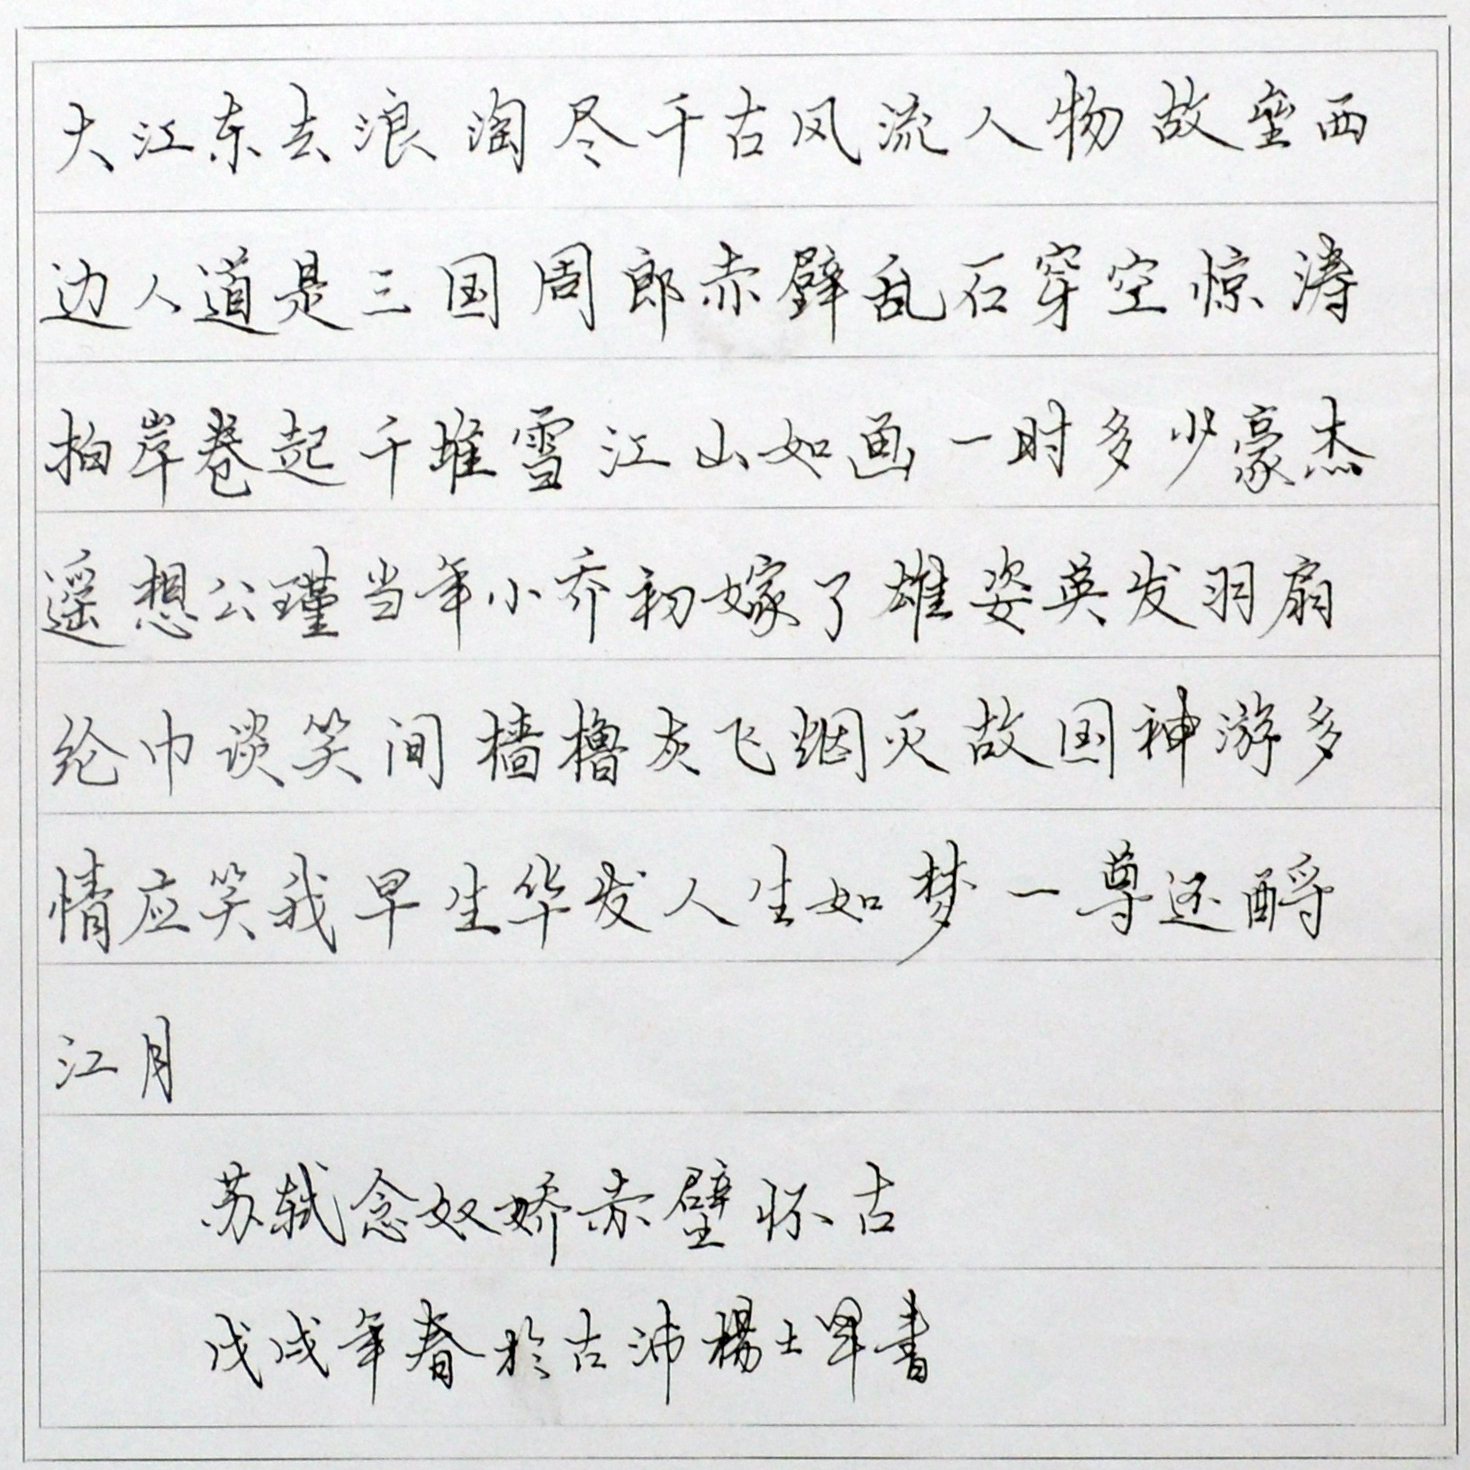 大江东去浪淘尽千古风流人物故垒西
边人道是三国周郎赤壁乱石穿空惊涛
拍岸卷起千堆雪江山如画一时多少豪杰
遥想公瑾当年小乔初嫁了雄姿英发羽扇
纶巾谈笑间樯橹灰飞烟灭故国神游多
情应笑我早生华发人生如梦一尊还酹
江月
苏轼念奴娇赤壁怀古
戊戌年春於古沛楊士军書